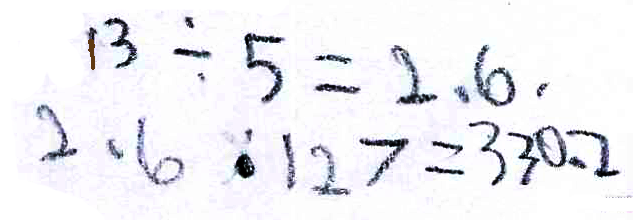 13 ÷ 5 = 2.6.
2.6 · 127 = 330.2